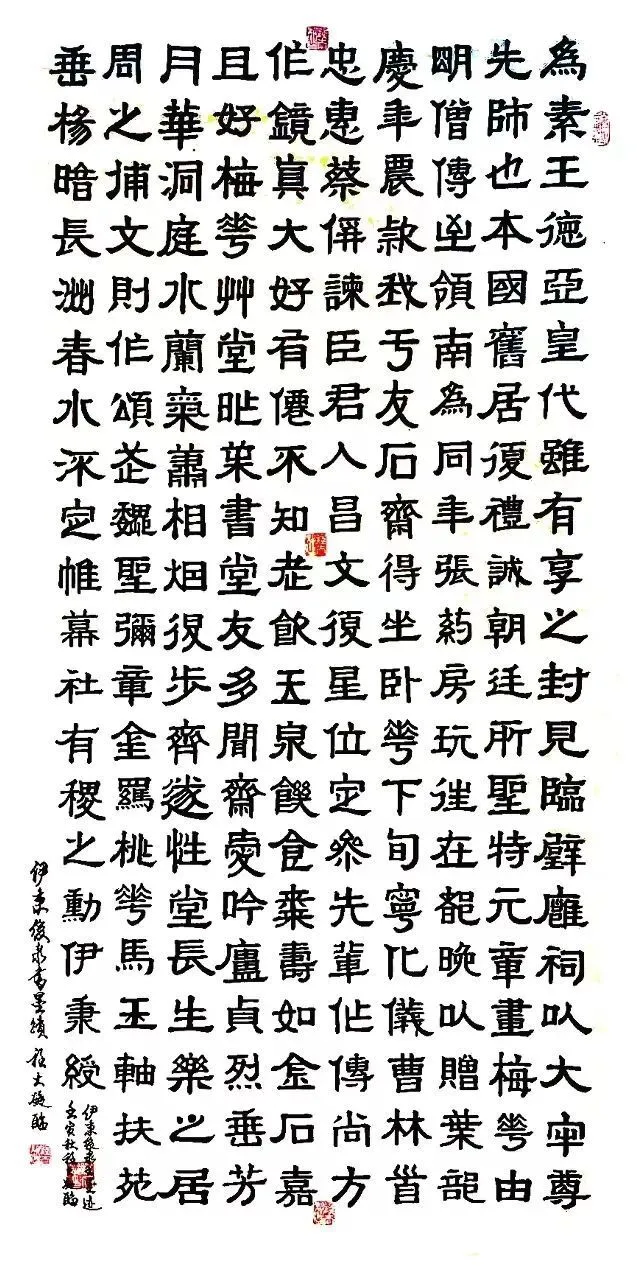 為素王德亞皇代雖有享之封見臨辟廱祠㠯大牢尊
先師也本國舊居復禮誠朝廷所聖特元章畫梅華由
明僧傳㞢領南為同年張葯房玩往在都晚㠯贈葉龍
慶年農款我于友石齋得坐卧華下旬寧化儀曹林首
忠惠蔡侔諫臣君人昌文復星位定參先輩作傳尚方
作鏡真大好有僊不知老飲玉泉饑食棗壽如金石嘉
且好梅華艸堂昨葉書堂友多聞齋愛吟廬貞烈垂芳
月華洞庭水蘭氣蕭相烟很步齊遂性堂長生樂之居
周之捕文則作頌芷魏聖彌章金羈桃華馬玉軸扶苑
垂楊暗長洲春水深定帷幕社有稷之勳伊秉綬
伊秉綬 墨迹
壬寅秋 臨
伊秉綬 書墨蹟 臨